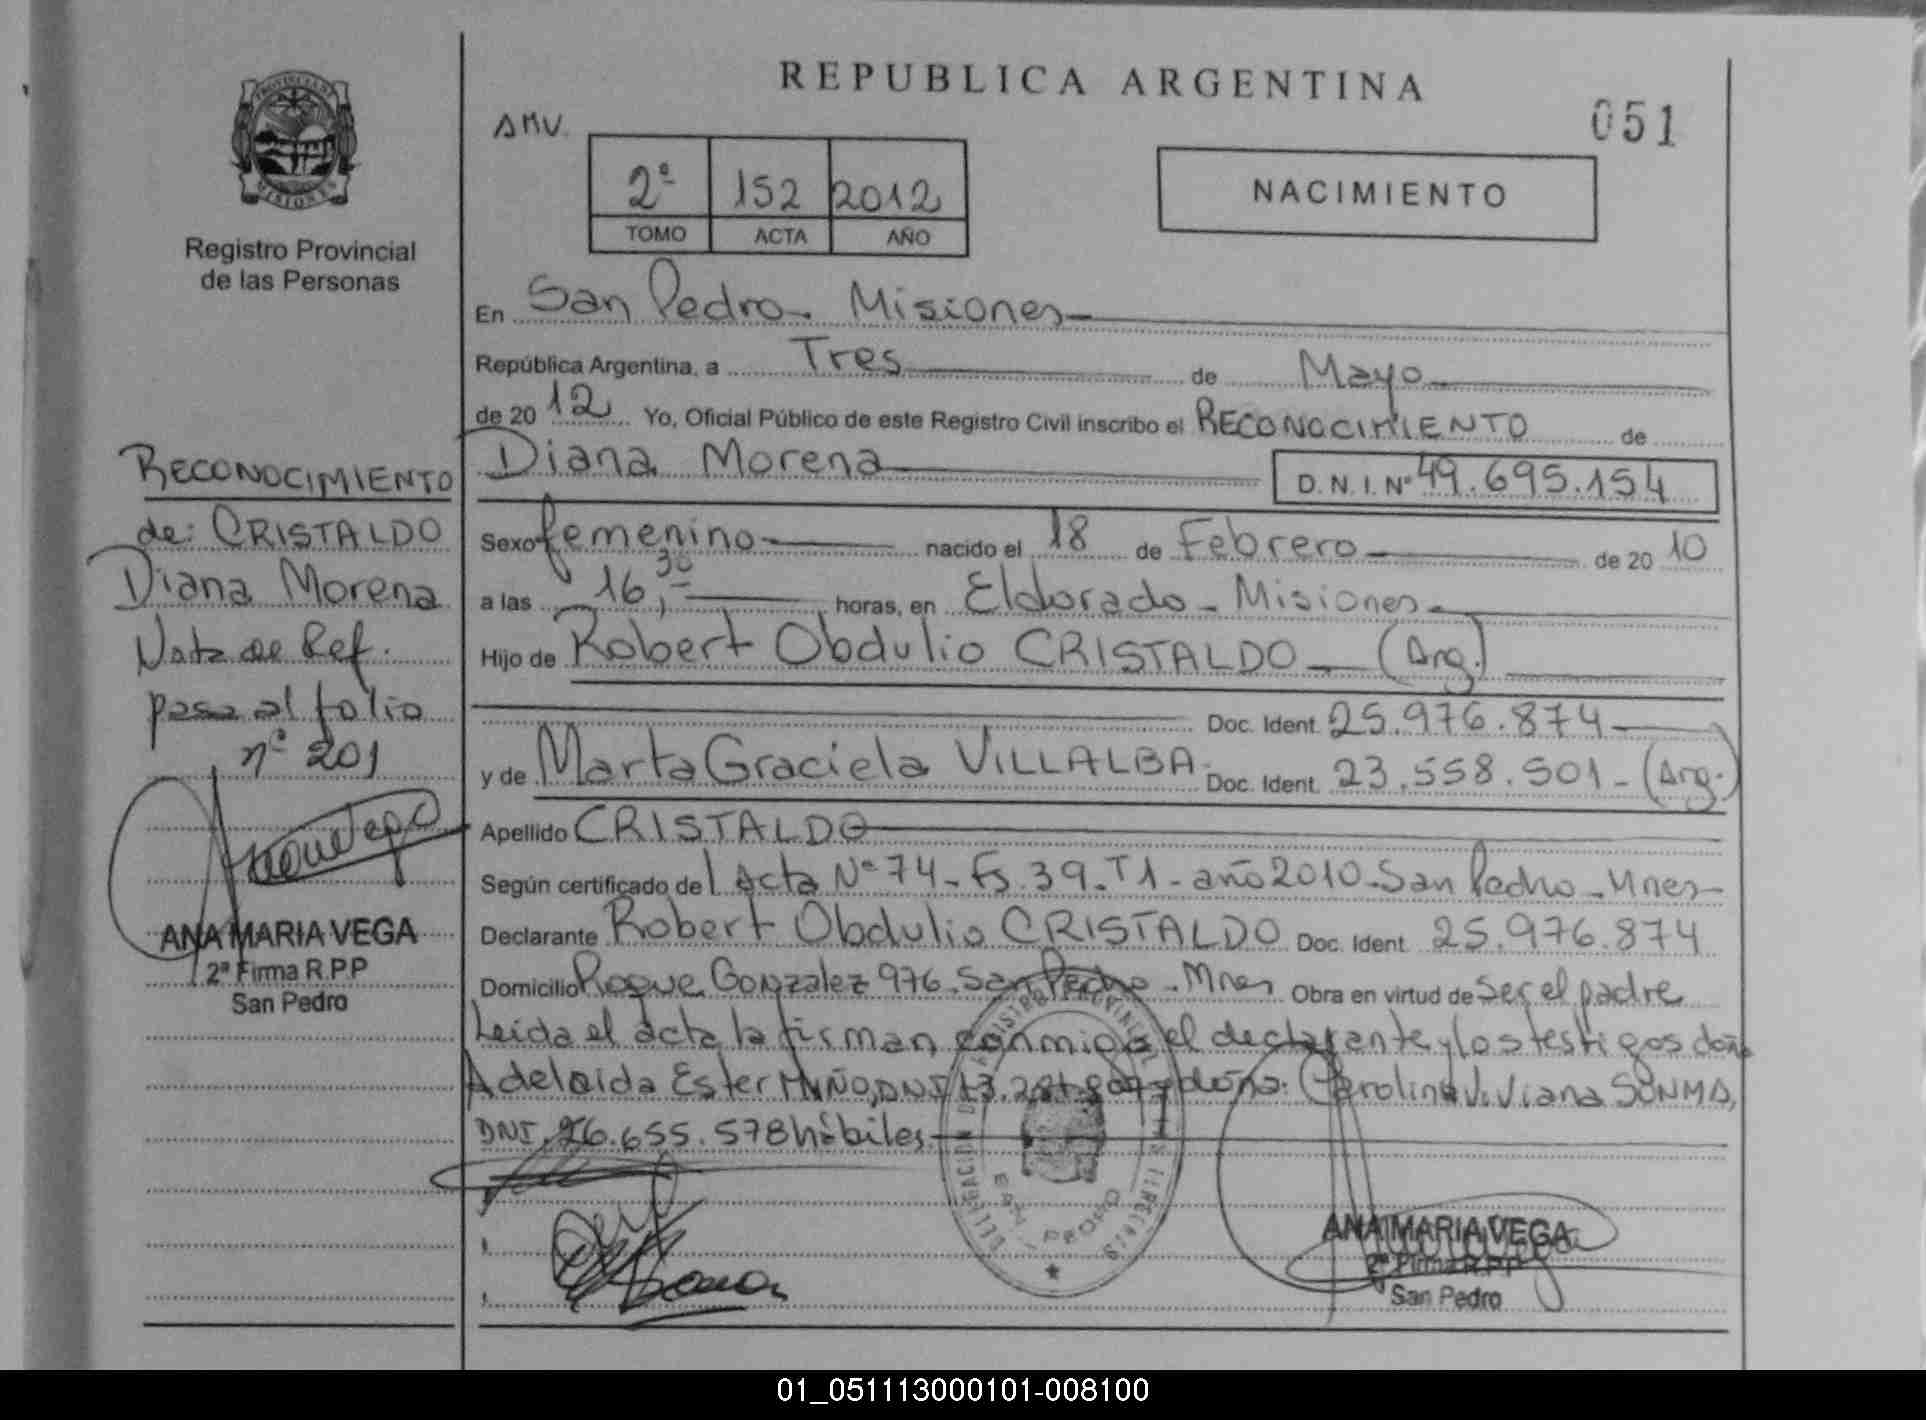 REPUBLICA ARGENTINA
051
AMV.
2º 152 2012
TOMO ACTA AÑO
NACIMIENTO
PROVINCIA DE MISIONES
Registro Provincial
de las Personas
En San Pedro - Misiones
República Argentina, a Tres de Mayo
de 20 12 Yo, Oficial Público de este Registro Civil inscribo el RECONOCIMIENTO de
Diana Morena D.N.I. Nº 49.695.154
Sexo femenino nacido el 18 de Febrero de 20 10
a las 16,30 horas, en Eldorado - Misiones
Hijo de Robert Obdulio CRISTALDO (Arg.)
Doc. Ident. 25.976.874
y de Marta Graciela VILLALBA Doc. Ident. 23.558.501 - (Arg.)
Apellido CRISTALDO
Según certificado del Acta Nº 74 - Fs. 39 - T1 - año 2010 - San Pedro - Mnes
Declarante Robert Obdulio CRISTALDO Doc. Ident. 25.976.874
Domicilio Roque Gonzalez 976 - San Pedro - Mnes Obra en virtud de Ser el padre
Leida el acta la firman conmigo el declarante y los testigos doña
Adelaida Ester MIÑO, DNI y doña: Carolina Viviana
DNI. 26.655.578 hábiles
RECONOCIMIENTO
de: CRISTALDO
Diana Morena
Nota de Ref.
pasa al folio
nº 201
ANA MARIA VEGA
2ª Firma R.P.P
San Pedro
SAN PEDRO
ANA MARIA VEGA
2ª Firma R.P.P
San Pedro
01_051113000101-008100